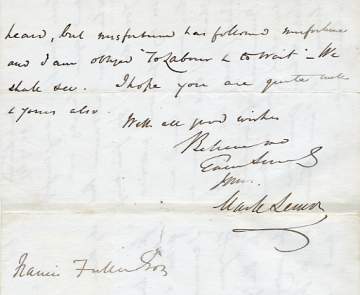 heard, but misfortune has followed misfortune
and I am obliged "To Labour & to wait" – We
shall see. I hope you are quite well
& yours also.
With all good wishes
Believe me
Ever
Yours
Mark Lemon
Francis Fuller Esq